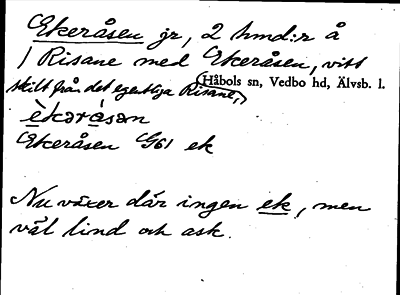 Ekeråsen gr, 2 hmd:r å
1 Risane med Ekeråsen, vitt
skilt från det egentliga Risane,
Håbols sn, Vedbo hd, Älvsb. l.
èkəråsən
Ekeråsen G61 ek
Nu växer där ingen ek, men
väl lind och ask.